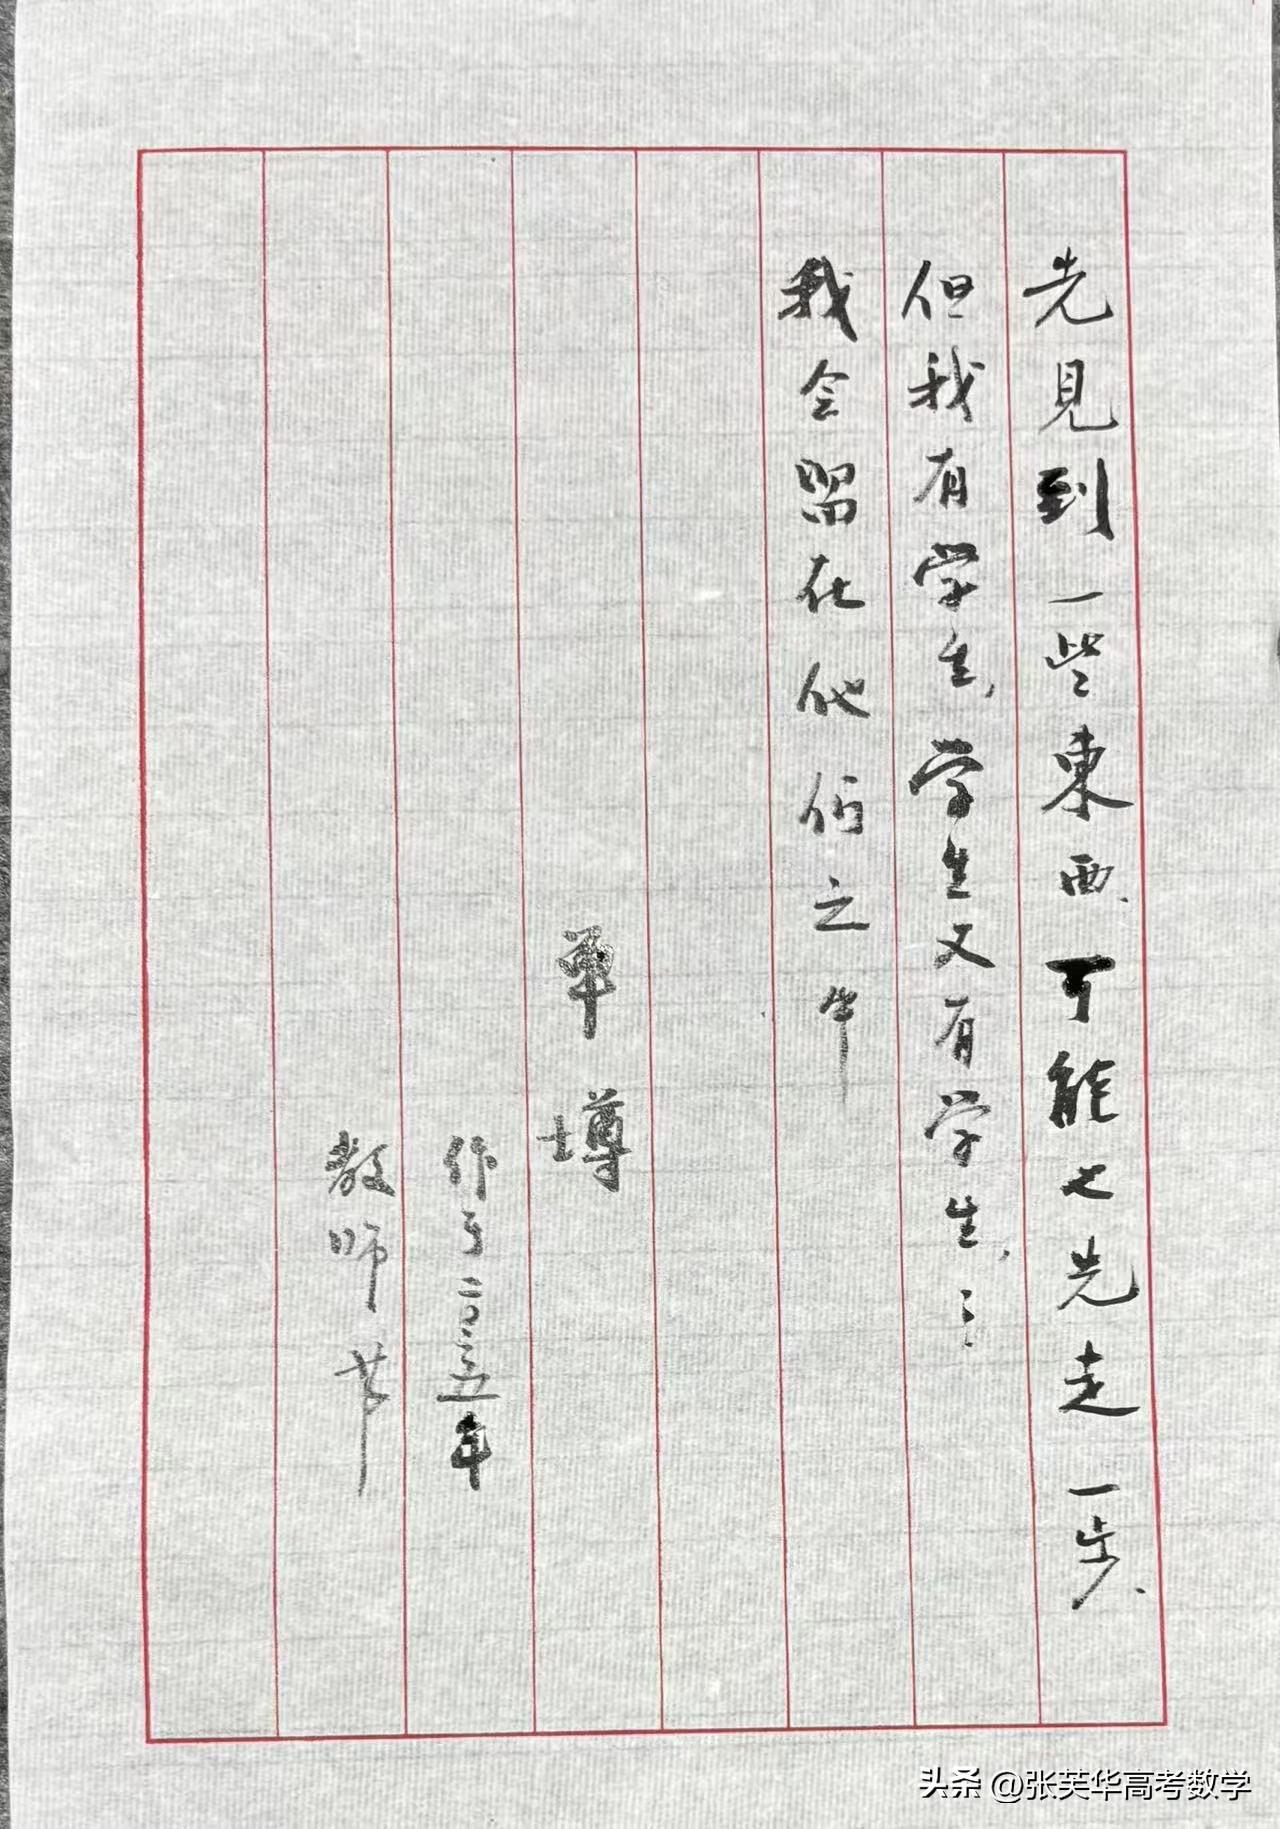 先見到一些東西、可能也先走一步、
但我有学生，学生又有学生，⋮
我会留在他们之中
单墫
作于二〇二五年
教师节
头条 @张芙华高考数学